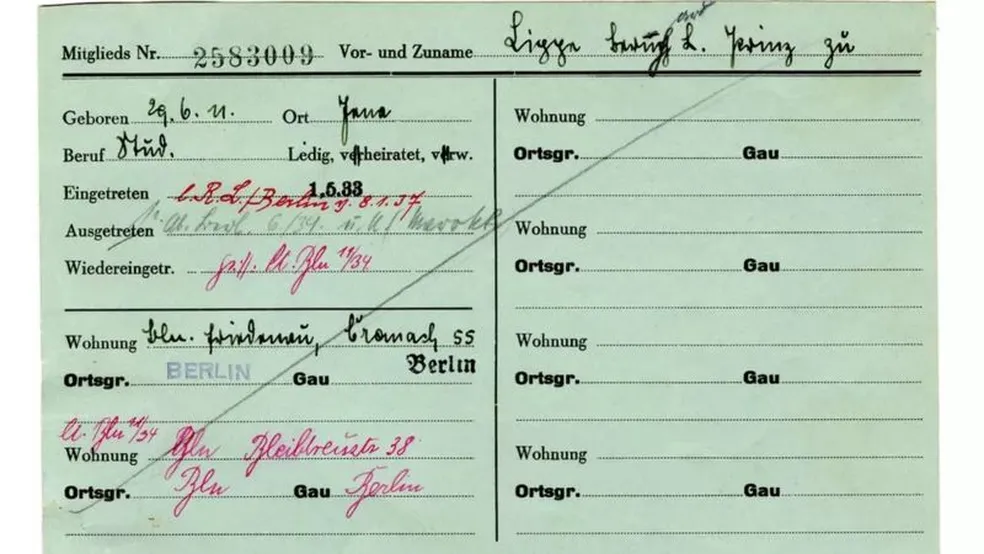 Mitglieds Nr. 2583009 Vor- und Zuname Lippe Bernhard L. Prinz zu
Geboren 29.6.11. Ort Jena
Beruf Stud. Ledig, verheiratet, verw.
Eingetreten 1.5.33
l. R. L./Berlin v. 8.1.37
Ausgetreten 6/34. u.
Wiedereingetr. lt. Bln 11/34
Wohnung Bln. Friedenau,
Berlin
Ortsgr. BERLIN Gau
lt. Bln 11/34
Wohnung Bln Bleibtreustr 38
Ortsgr. Bln Gau Berlin
Wohnung
Ortsgr. Gau
Wohnung
Ortsgr. Gau
Wohnung
Ortsgr. Gau
Wohnung
Ortsgr. Gau